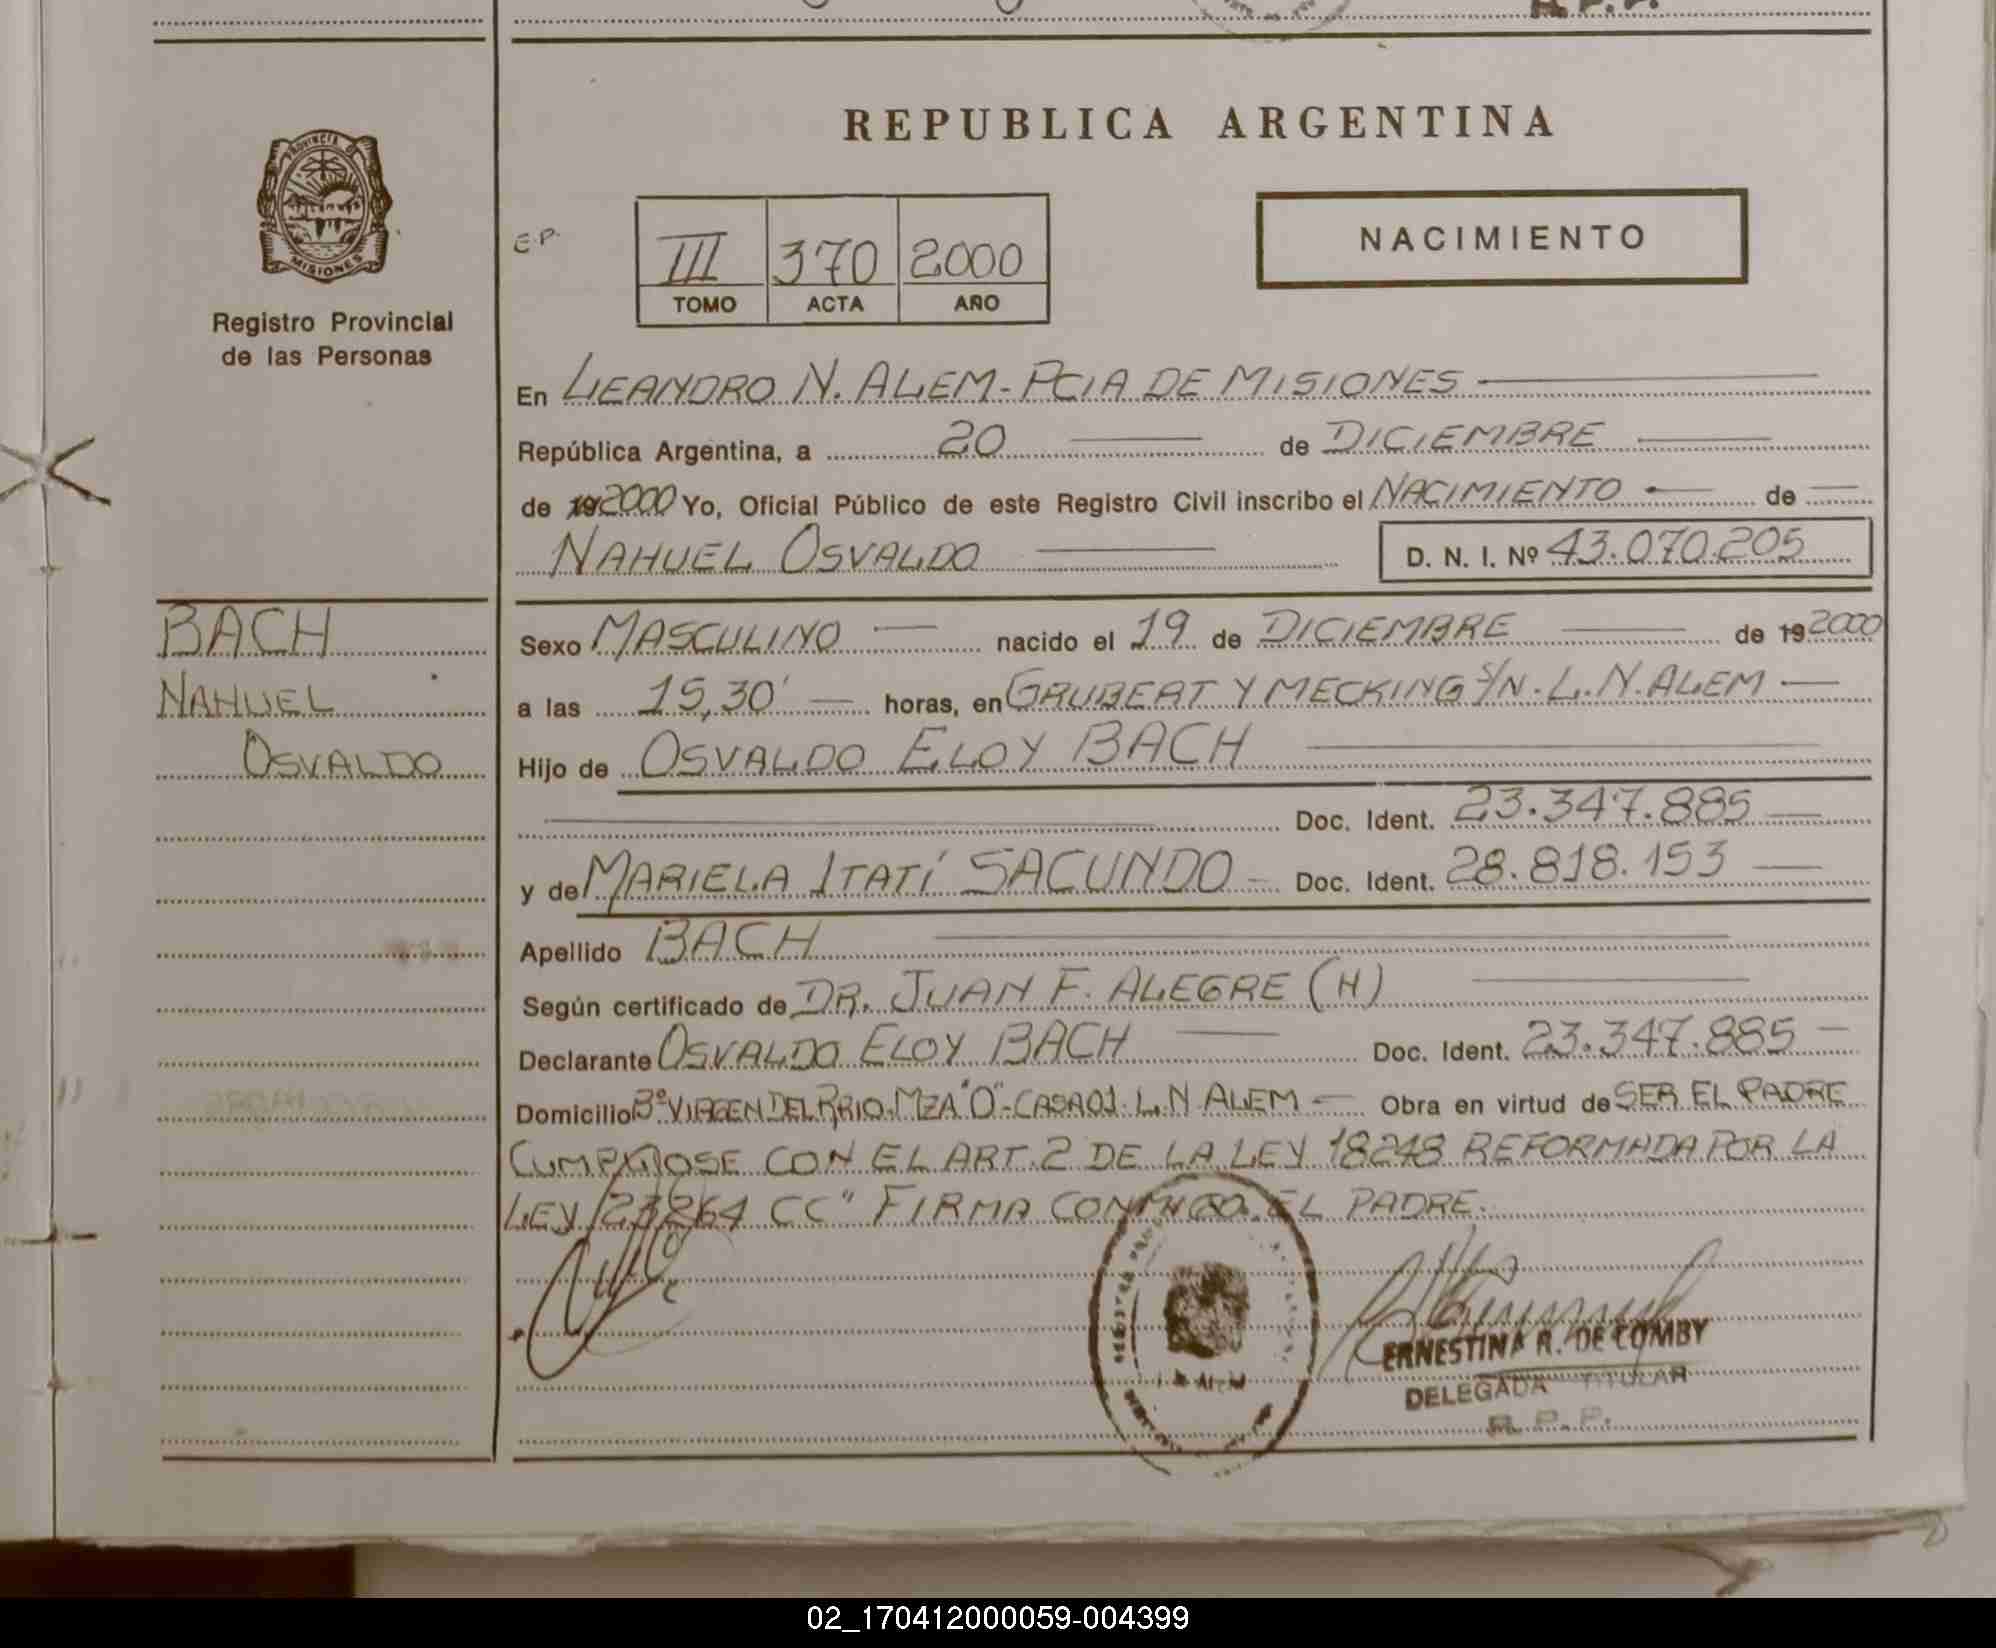 REPUBLICA ARGENTINA
PROVINCIA D
MISIONES
Registro Provincial
de las Personas
E.P.
III 370 2000
TOMO ACTA AÑO
NACIMIENTO
En LEANDRO N. ALEM - PCIA DE MISIONES
República Argentina, a 20 de DICIEMBRE
de 19 2000 Yo, Oficial Público de este Registro Civil inscribo el NACIMIENTO de
NAHUEL OSVALDO D. N. I. Nº 43.070.205
BACH
NAHUEL
OSVALDO
Sexo MASCULINO nacido el 19 de DICIEMBRE de 19 2000
a las 15,30' horas, en GRUBERT Y MECKING S/N. L. N. ALEM
Hijo de OSVALDO ELOY BACH
Doc. Ident. 23.347.885
y de MARIELA ITATÍ SACUNDO Doc. Ident. 28.818.153
Apellido BACH
Según certificado de DR. JUAN F. ALEGRE (H)
Declarante OSVALDO ELOY BACH Doc. Ident. 23.347.885
Domicilio Bº VIRGEN DEL RRIO. MZA "O" - CASA 01. L. N ALEM Obra en virtud de SER EL PADRE
CUMPLIOSE CON EL ART. 2 DE LA LEY 18248 REFORMADA POR LA
LEY 23264 CC" FIRMA CONMIGO EL PADRE.
ERNESTINA R. DE COMBY
DELEGADA TITULAR
R. P. P.
02_170412000059-004399